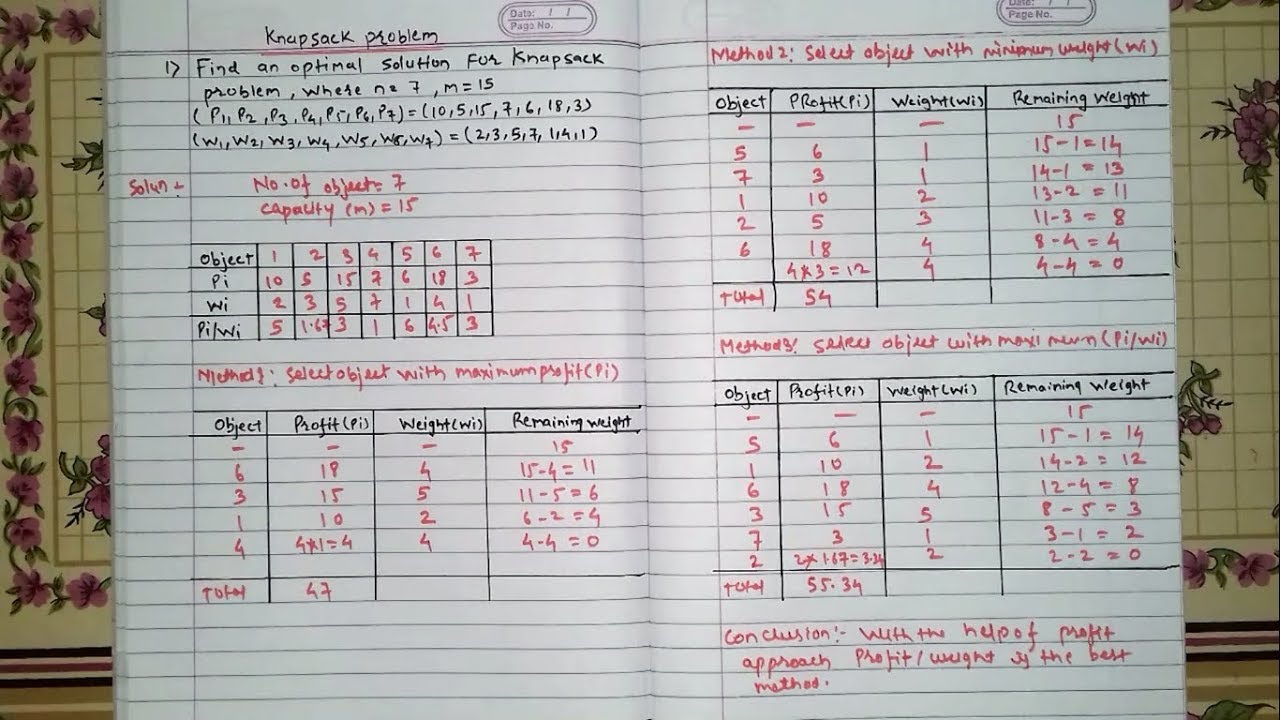 Date: / /
Page No.
Knapsack problem
1) Find an optimal solution For Knapsack
problem, where n=7, m=15
(P1, P2, P3, P4, P5, P6, P7) = (10, 5, 15, 7, 6, 18, 3)
(w1, w2, w3, w4, w5, w6, w7) = (2, 3, 5, 7, 1, 4, 1)
Solun→
No. of object = 7
capacity (m) = 15
Object 1 2 3 4 5 6 7
Pi 10 5 15 7 6 18 3
Wi 2 3 5 7 1 4 1
Pi/Wi 5 1.67 3 1 6 4.5 3
Method 1: Select object with maximum profit (Pi)
Object Profit(Pi) Weight(wi) Remaining weight
— — — 15
6 18 4 15-4=11
3 15 5 11-5=6
1 10 2 6-2=4
4 4*1=4 4 4-4=0
Total 47
Date: / /
Page No.
Method 2: Select object with minimum weight (Wi)
Object PRofit(Pi) Weight(Wi) Remaining Weight
— — — 15
5 6 1 15-1=14
7 3 1 14-1=13
1 10 2 13-2=11
2 5 3 11-3=8
6 18 4 8-4=4
4*3=12 4 4-4=0
Total 54
Method 3: Select object with maximum (Pi/Wi)
Object Profit(Pi) Weight(Wi) Remaining Weight
— — — 15
5 6 1 15-1=14
1 10 2 14-2=12
6 18 4 12-4=8
3 15 5 8-5=3
7 3 1 3-1=2
2 2*1.67=3.34 2 2-2=0
Total 55.34
Conclusion:- With the help of profit
approach Profit/weight is the best
method.